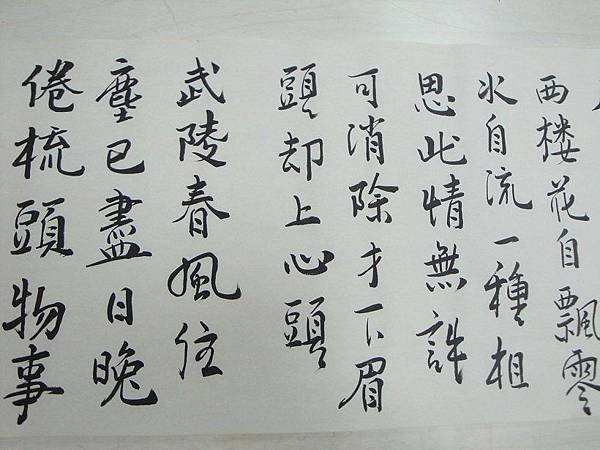 西楼花自飄零
水自流一種相
思此情無計
可消除才下眉
頭却上心頭
武陵春風住
塵已盡日晚
倦梳頭物事